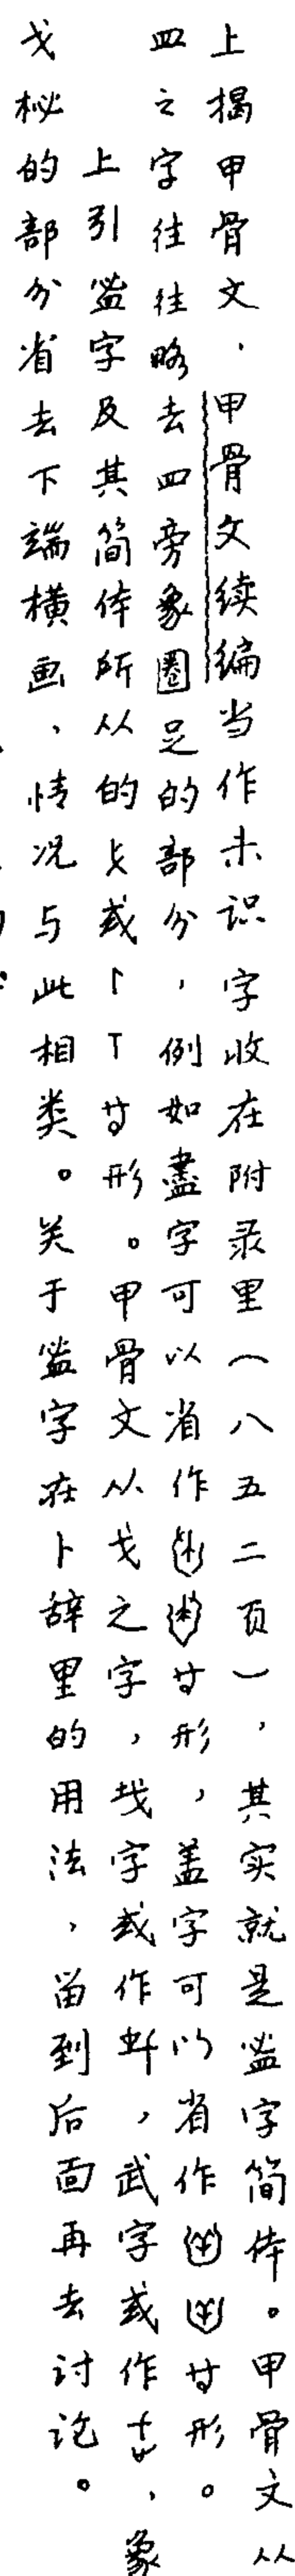 上揭甲骨文，甲骨文续编当作未识字收在附录里（八五二页），其实就是字简体。甲骨文从
皿之字往往略去四旁象圈足的部分，例如盡字可以省作等形，盖字可以省作等形。
上引字及其简体所从的或等形。甲骨文从戈之字，字或作，武字或作，象
戈柲的部分省去下端横画，情况与此相类。关于字在卜辞里的用法，留到后面再去讨论。